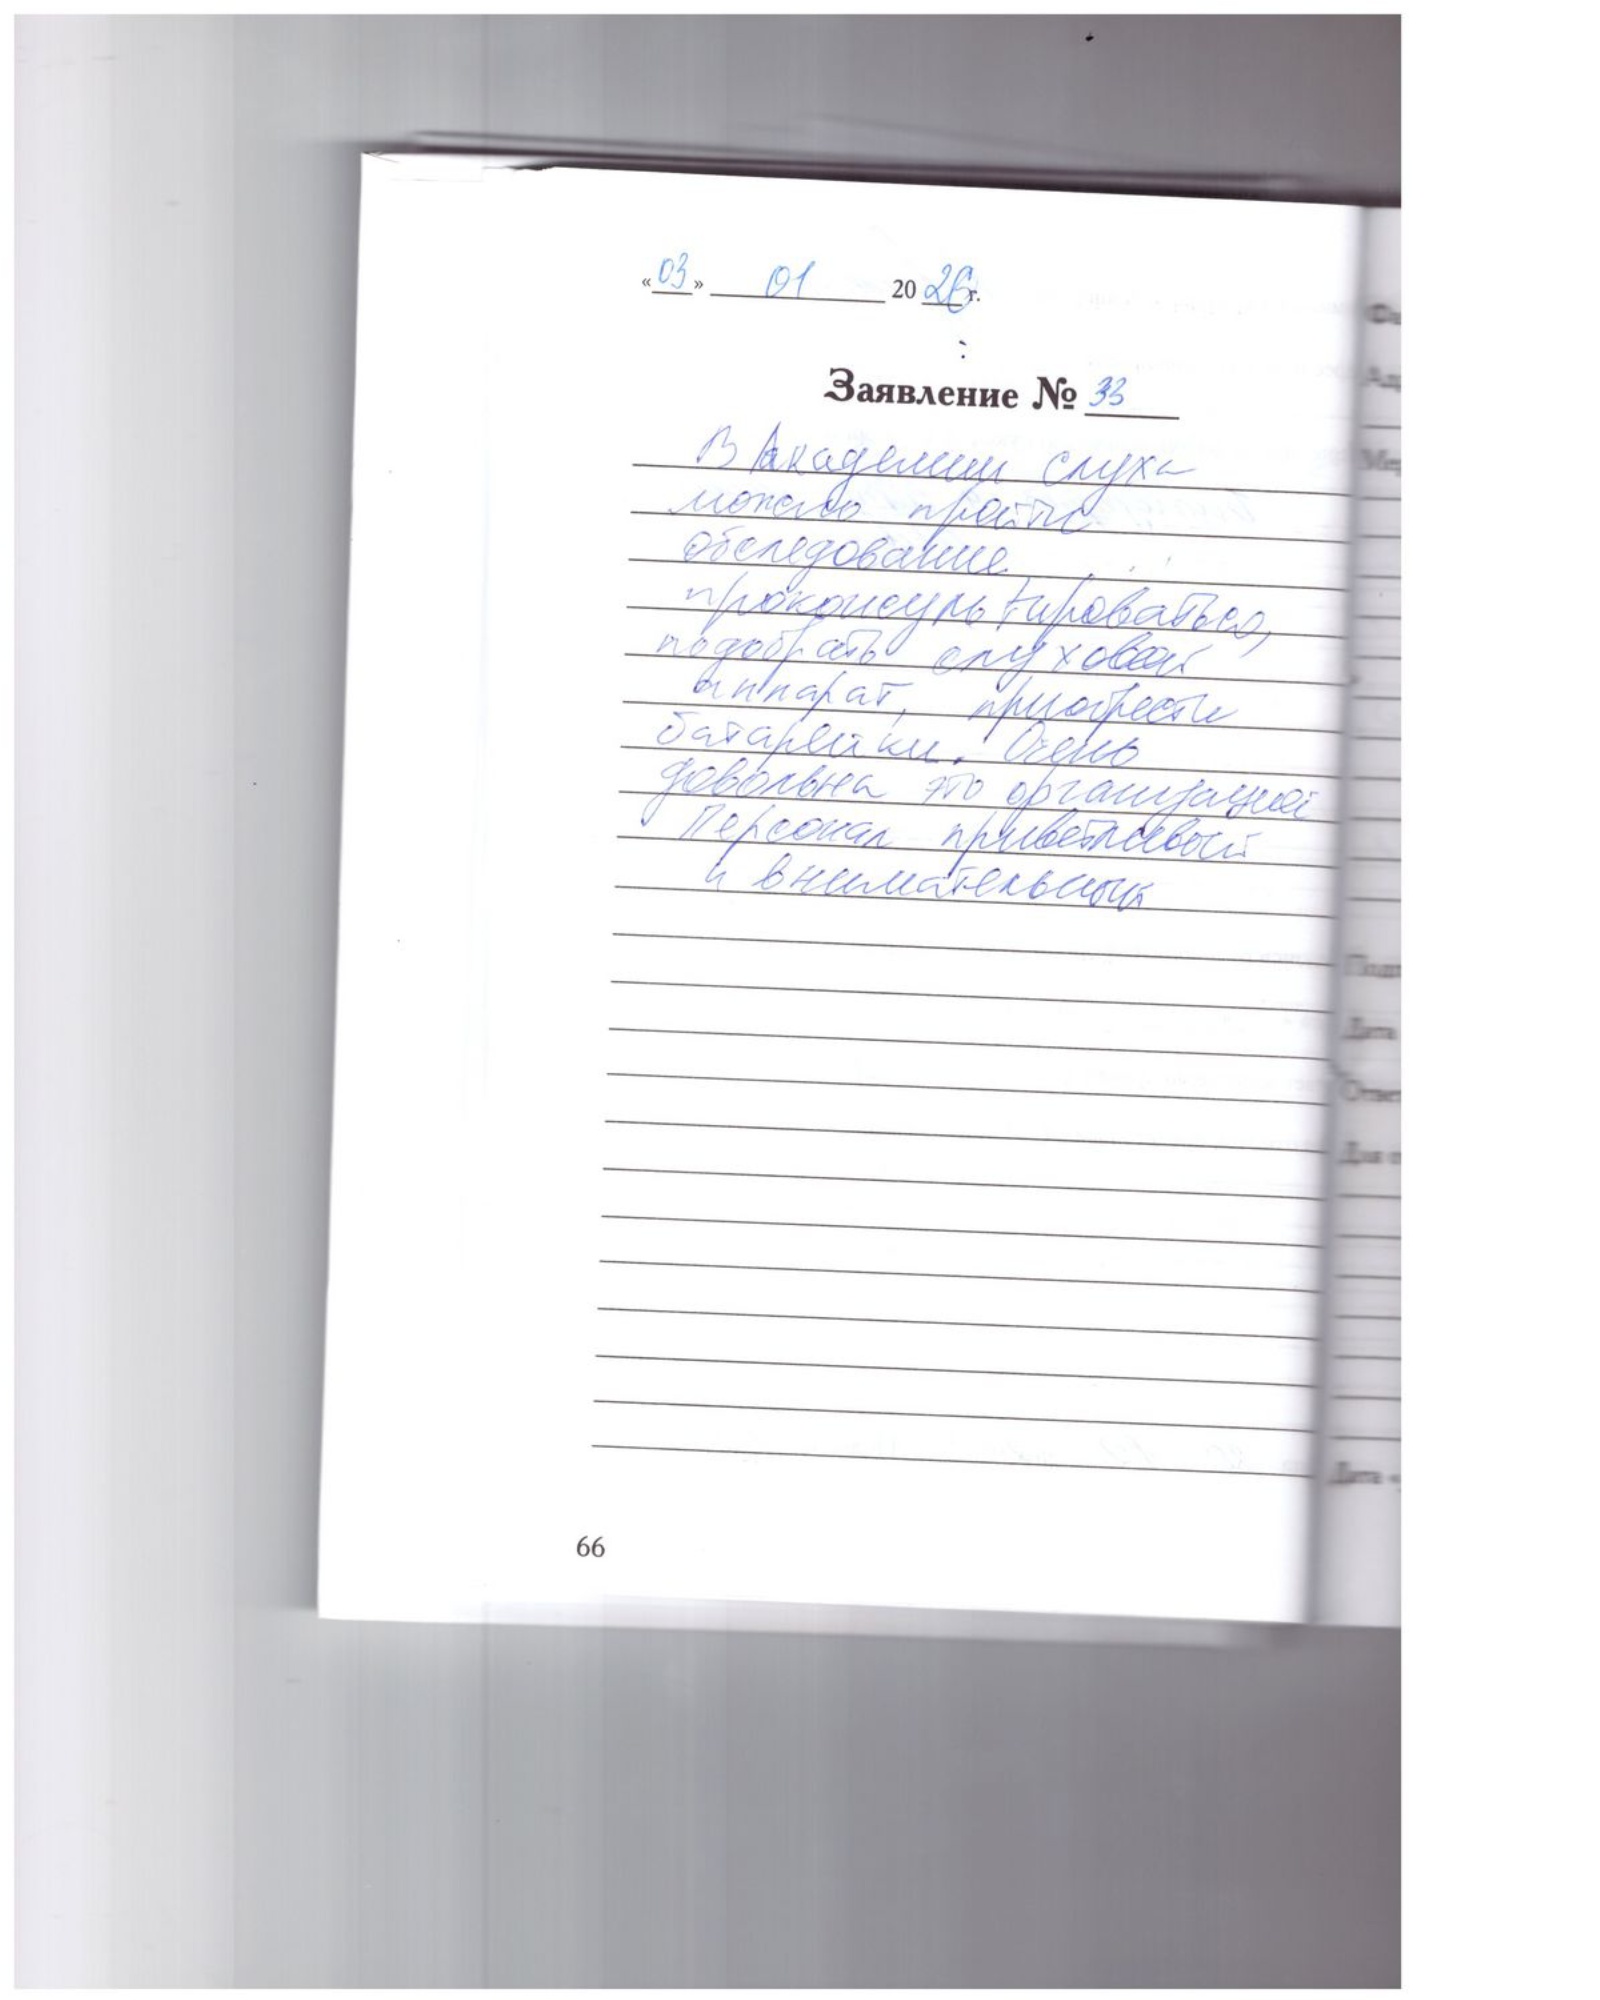 «03» 01 2026 г.
Заявление № 33
В Академии слуха
можно пройти
обследование
проконсультироваться,
подобрать слуховой
аппарат, приобрести
батарейки. Очень
довольна это организацией
Персонал приветливый
и внимательный
66
Подп
Дата
Ответ
Для
Дата «